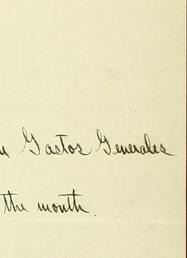 Gastos Generales
the month.